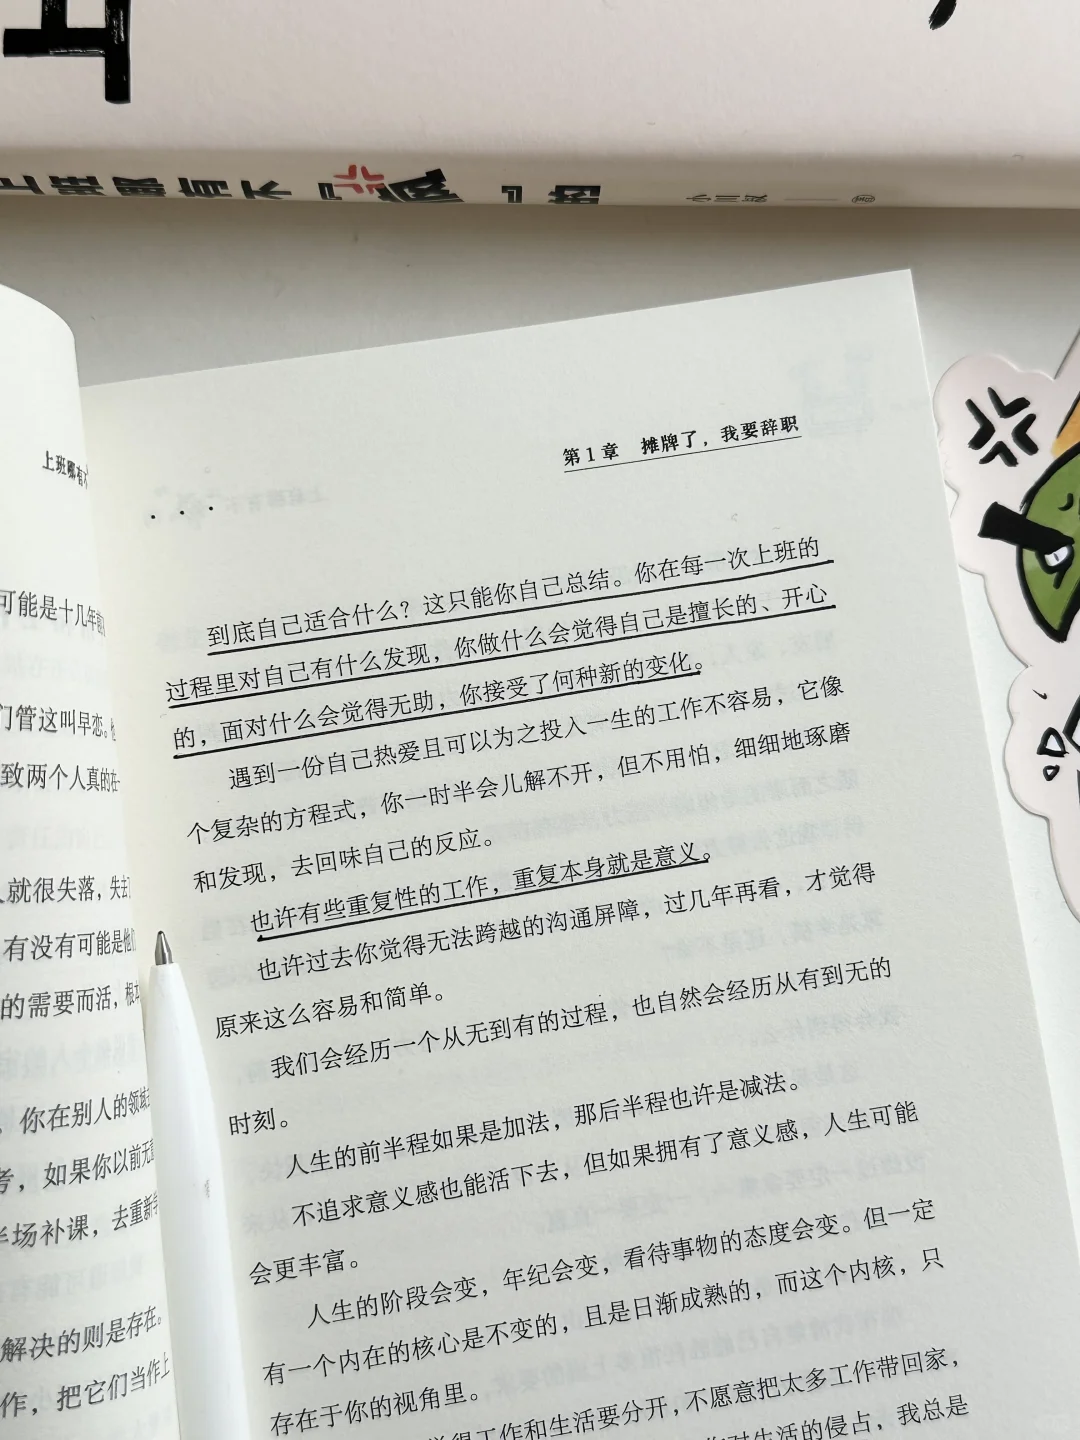 上班哪有不疯的
上班哪有
可能是十几年前
们管这叫早恋。
致两个人真的在一
人就很失落，失去
有没有可能是他们
的需要而活，根本
，你在别人的领域
考，如果你以前无
半场补课，去重新学
解决的则是存在。
作，把它们当作上
第1章 摊牌了，我要辞职
...
到底自己适合什么？这只能你自己总结。你在每一次上班的
过程里对自己有什么发现，你做什么会觉得自己是擅长的、开心
的，面对什么会觉得无助，你接受了何种新的变化。
遇到一份自己热爱且可以为之投入一生的工作不容易，它像
个复杂的方程式，你一时半会儿解不开，但不用怕，细细地琢磨
和发现，去回味自己的反应。
也许有些重复性的工作，重复本身就是意义。
也许过去你觉得无法跨越的沟通屏障，过几年再看，才觉得
原来这么容易和简单。
我们会经历一个从无到有的过程，也自然会经历从有到无的
时刻。
人生的前半程如果是加法，那后半程也许是减法。
不追求意义感也能活下去，但如果拥有了意义感，人生可能
会更丰富。
人生的阶段会变，年纪会变，看待事物的态度会变。但一定
有一个内在的核心是不变的，且是日渐成熟的，而这个内核，只
存在于你的视角里。
觉得工作和生活要分开，不愿意把太多工作带回家，
对生活的侵占，我总是